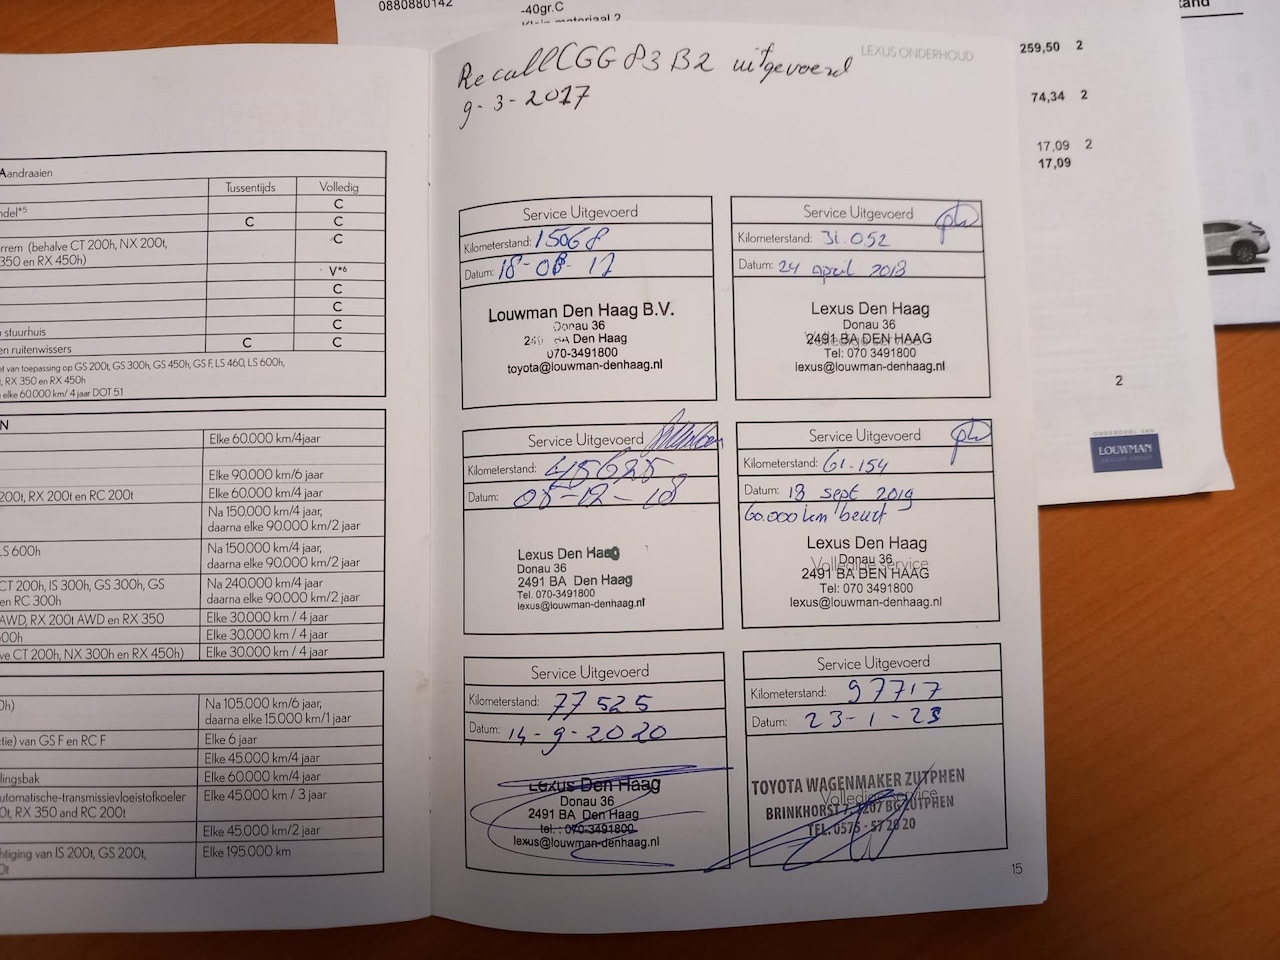 0880880142
-40gr.C
259,50 2
74,34 2
17,09 2
17,09
2
ONDERDEEL VAN
LOUWMAN
Aandraaien
Tussentijds Volledig
ndel*5 C
C C
rrem (behalve CT 200h, NX 200t, C
350 en RX 450h)
V*6
C
C
n stuurhuis C
en ruitenwissers C C
et van toepassing op GS 200t, GS 300h, GS 450h, GS F, LS 460, LS 600h,
, RX 350 en RX 450h
n elke 60.000 km/ 4 jaar DOT 5.1
N
Elke 60.000 km/4jaar
Elke 90.000 km/6 jaar
200t, RX 200t en RC 200t Elke 60.000 km/4 jaar
Na 150.000 km/4 jaar,
daarna elke 90.000 km/2 jaar
LS 600h Na 150.000 km/4 jaar,
daarna elke 90.000 km/2 jaar
CT 200h, IS 300h, GS 300h, GS Na 240.000 km/4 jaar
en RC 300h daarna elke 90.000 km/2 jaar
AWD, RX 200t AWD en RX 350 Elke 30.000 km / 4 jaar
600h Elke 30.000 km / 4 jaar
ve CT 200h, NX 300h en RX 450h) Elke 30.000 km / 4 jaar
0h) Na 105.000 km/6 jaar,
daarna elke 15.000 km/1 jaar
ctie) van GS F en RC F Elke 6 jaar
Elke 45.000 km/4 jaar
llingsbak Elke 60.000 km/4 jaar
automatische-transmissievloeistofkoeler Elke 45.000 km / 3 jaar
0t, RX 350 and RC 200t
Elke 45.000 km/2 jaar
htiging van IS 200t, GS 200t, Elke 195.000 km
LEXUS ONDERHOUD
Recall CGG 83 B2 uitgevoerd
9-3-2017
Service Uitgevoerd
Kilometerstand: 15068
Datum: 18-08-17
Louwman Den Haag B.V.
Donau 36
Den Haag
070-3491800
toyota@louwman-denhaag.nl
Service Uitgevoerd
Kilometerstand: 31.052
Datum: 24 april 2018
Lexus Den Haag
Donau 36
2491 BA DEN HAAG
Tel: 070 3491800
lexus@louwman-denhaag.nl
Service Uitgevoerd
Kilometerstand: 45625
Datum: 05-12-18
Lexus Den Haag
Donau 36
2491 BA Den Haag
Tel. 070-3491800
lexus@louwman-denhaag.nl
Service Uitgevoerd
Kilometerstand: 61.154
Datum: 18 sept 2019
60.000 km beurt
Lexus Den Haag
Donau 36
Volledige service
2491 BA DEN HAAG
Tel: 070 3491800
lexus@louwman-denhaag.nl
Service Uitgevoerd
Kilometerstand: 77525
Datum: 14-9-2020
Lexus Den Haag
Donau 36
2491 BA Den Haag
tel.: 070-3491800
lexus@louwman-denhaag.nl
Service Uitgevoerd
Kilometerstand: 97717
Datum: 23-1-23
TOYOTA WAGENMAKER ZUTPHEN
Volledige service
BRINKHORST 7, 7207 BG ZUTPHEN
TEL. 0575 - 57 20 20
15